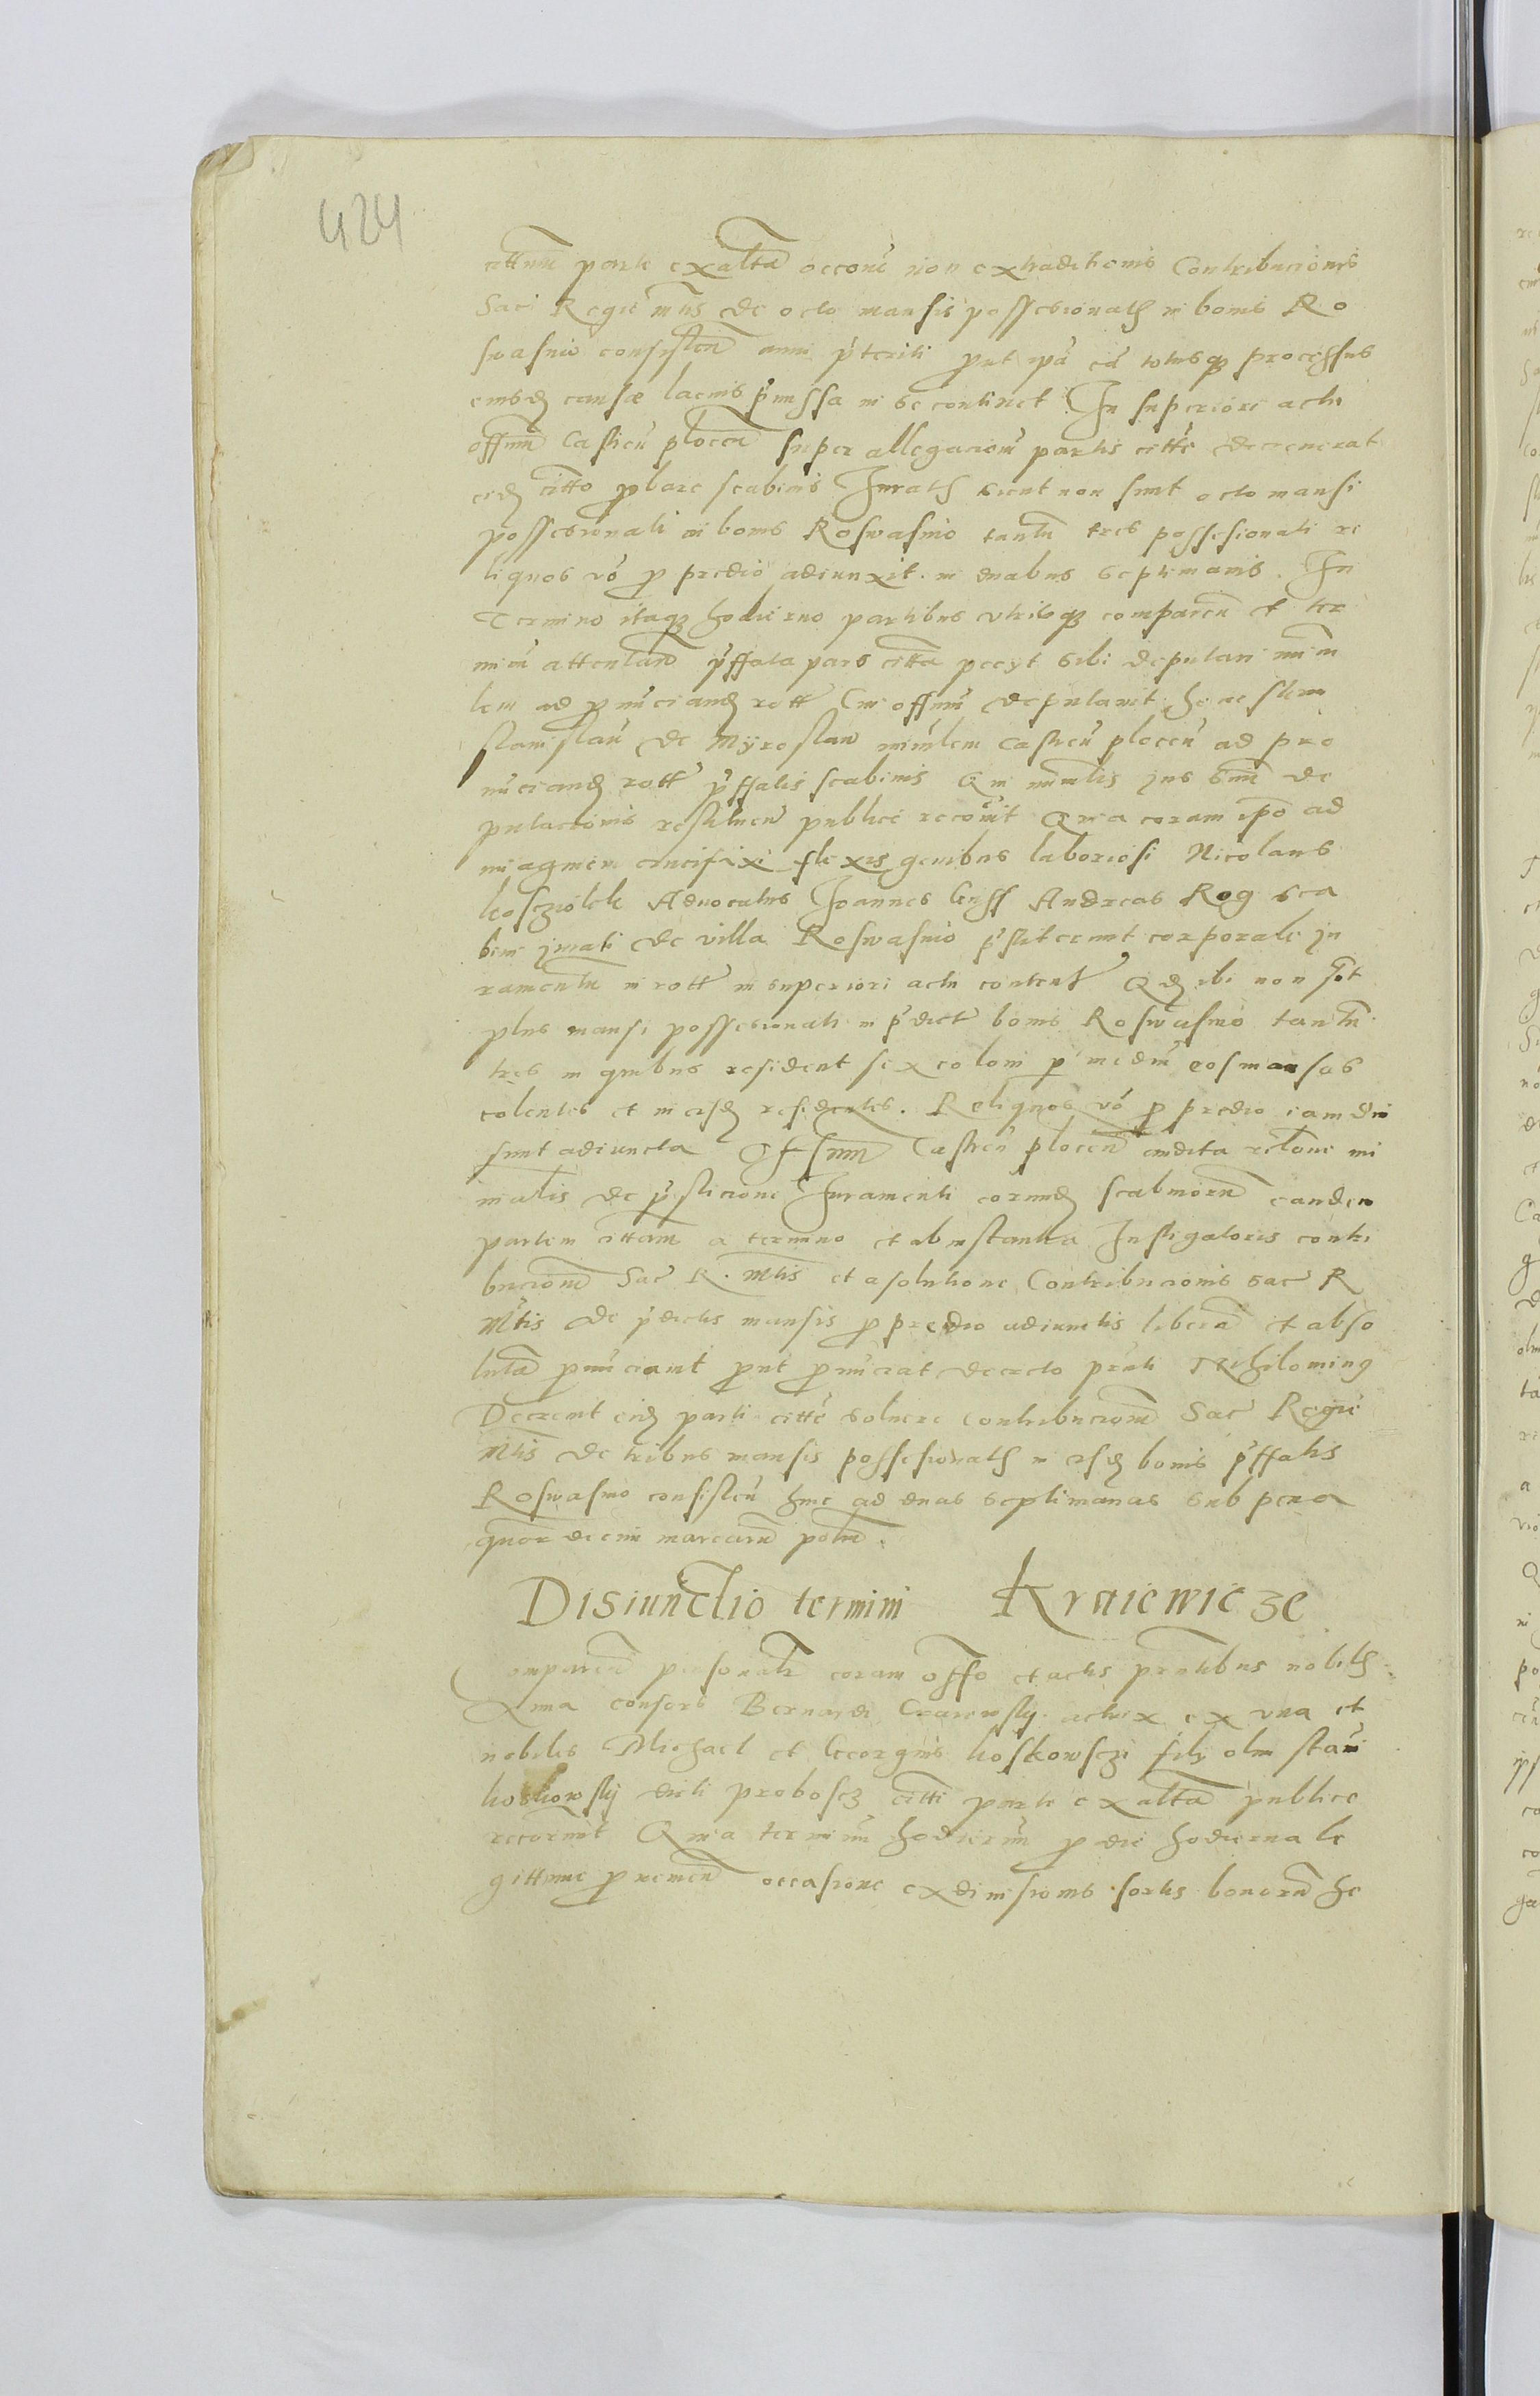 424
cittum parte ex alta occone non extraditionis Contribucionis
Sac Regie mtis de octo mansis possesionath in bonis Ro
swasnio consisten anni pteriti put ipa ca totusqz processus
eiusd causae lacius pmissa in se continet In superiori actu
offium Castren plocen super allegacione partis citte decreuerat
eid citto pbare scabinis Jurath sicut non sunt octo mansi
possesionati in bonis Roswasnio tantu tres possesionati re
liquos vo p predio adiunxit in duabus septimanis. In
Termino itaqz hodierno partibus vtrisqz comparen et ter
minu attentan pffata pars citta pecyt sibi deputari minira
lem ad pnuciand rott Cui offium deputauit honestum
stanislau de Myroslaw minralem castren plocen ad pro
nuciand rott pffatis scabinis Qui minralis jus suum de
putacionis restituen publice recouit Quia coram ipo ad
imaginem crucifixi flexis genibus laboriosi Nicolaus
koscziolek Aduocatus Joannes Andreas Rog sca
bini jurati de villa Roswasnio pstiterunt corporale ju
ramentu in rott in superiori actu content Qd ibi non sut
plus mansi possesionati in pdict bonis Roswasnio tantu
tres in quibus resident sex coloni p mediu eos mansos
colentes et in eisd residentes. Reliquos vo p predio iam diu
sunt adiuncta Offium Castren plocen audita relatione mi
nralis de psticione Juramenti eorund scabinoru eandem
partem cittam a termino et ab instantia Instigatoris contri
bucionu Sac R. Mtis et a solutione Contribucionis sac R
Mtis de pdictis mansis p predio adiunctis libera et abso
luta pnuciauit put pnuciat decreto pnti Nihilominus
Decreuit eid parti citte soluere contribucione Sac Regie
Mtis de tribus mansis possesionath in eisd bonis pffatis
Roswasnio consisten hinc ad duas septimanas sub pena
quatuordecim marcaru polon.
Disiunctio termini Kraiewicze
Comparen personalr coram offo et actis pntibus nobilis
Anna consors Bernardi Craiewsky actrix ex vna et
nobiles Michael et Georgius koskowsczi filij olim stani
koskowsky dicti probosz citti parte ex alta publice
recorunt Quia terminu hodiernu p die hodierna le
gittime puenien occasione exdiuisionis sortis bonoru he